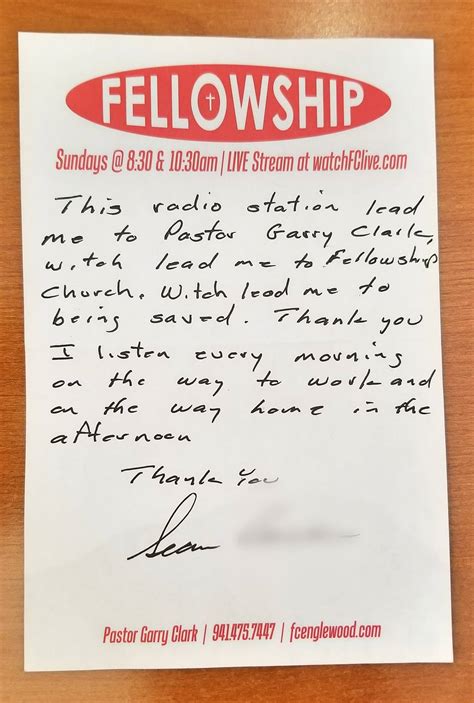 FELLOWSHIP
Sundays @ 8:30 & 10:30am | LIVE Stream at watchFClive.com
This radio station lead
me to Pastor Garry Clark,
witch lead me to Fellowship
Church. Witch lead me to
being saved. Thank you
I listen every morning
on the way to work and
on the way home in the
afternoon
Thank You
Sean
Pastor Garry Clark | 941.475.7447 | fcenglewood.com